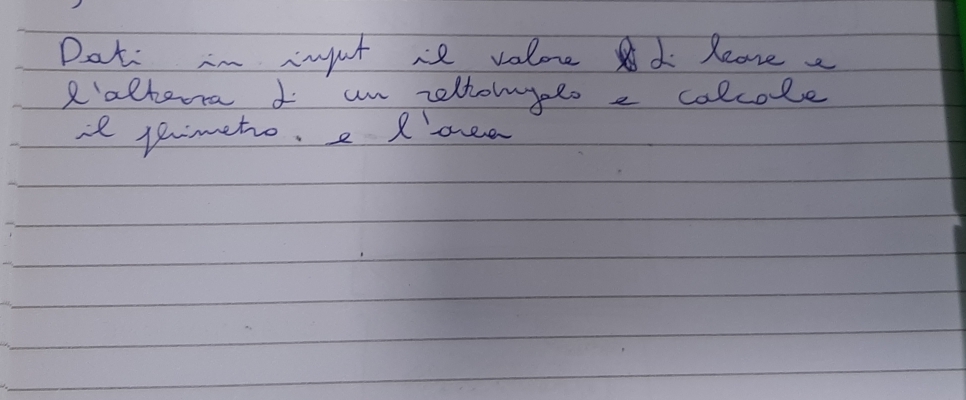 Dati in input il valore di base e
l'altezza di un rettangolo e calcola
il perimetro. e l'area